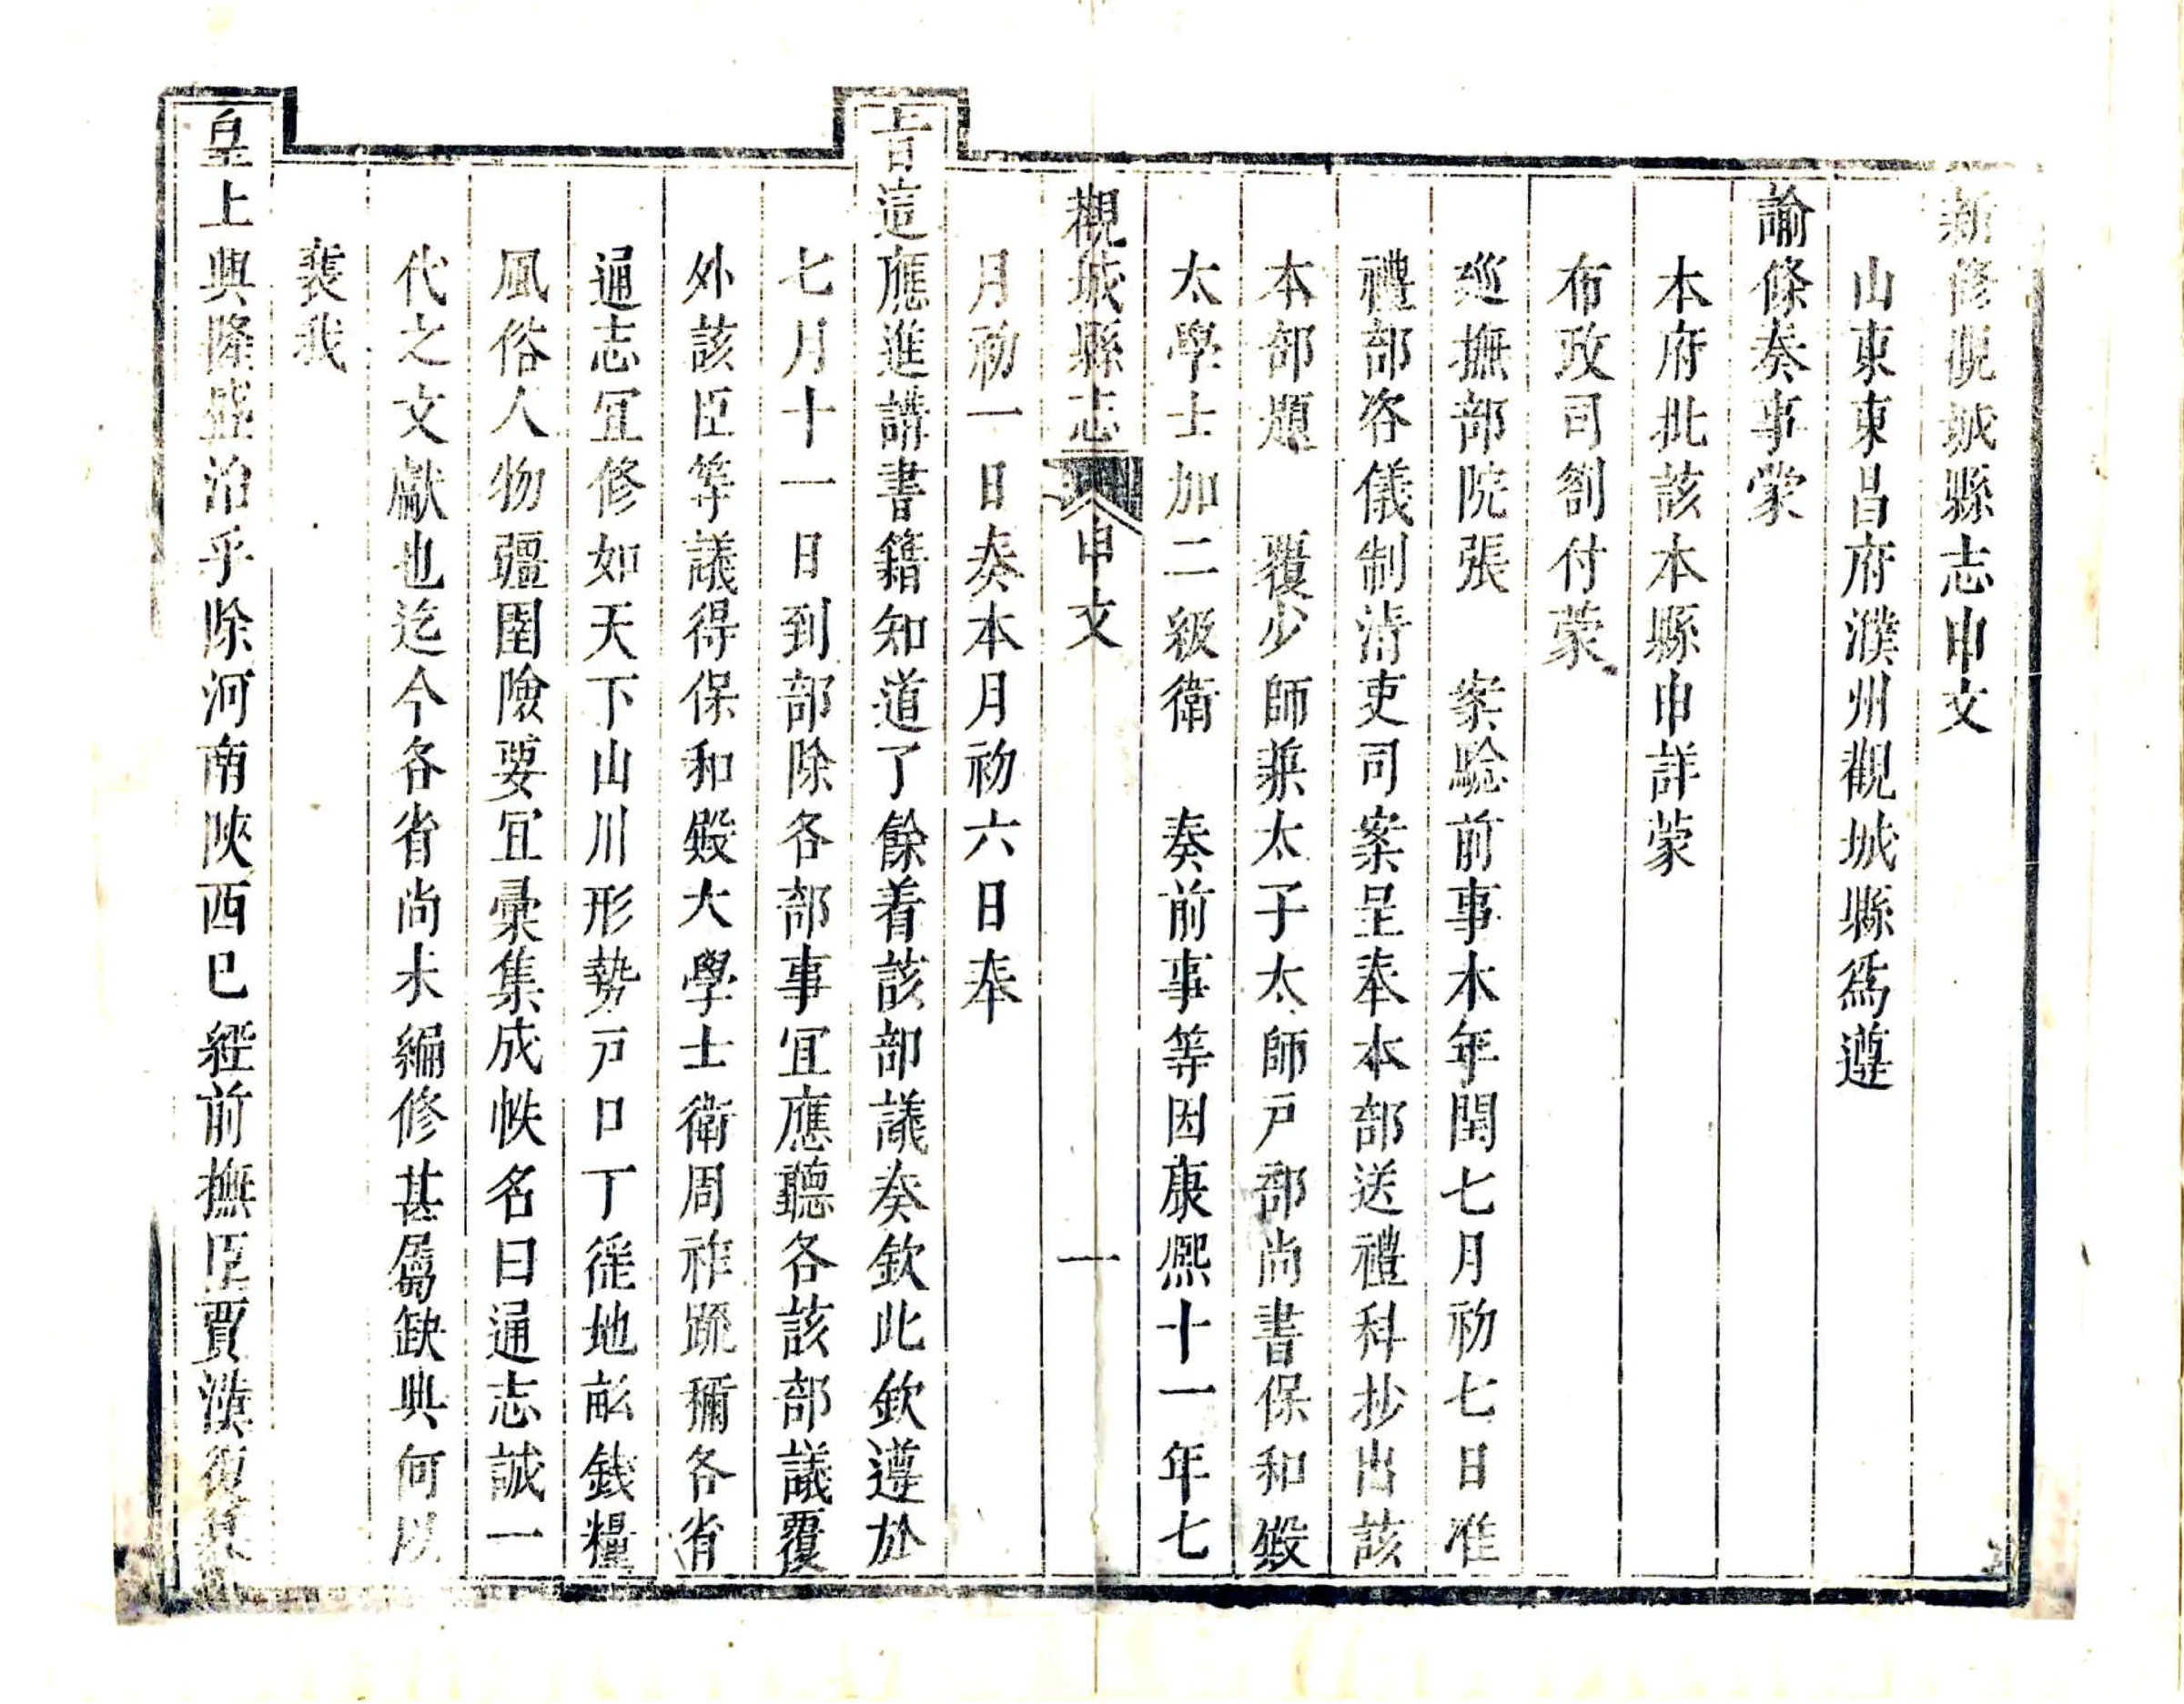 新修觀城縣志申文
山東東昌府濮州觀城縣爲遵
諭條奏事蒙
本府批該本縣申詳蒙
布政司劄付蒙
巡撫部院張　案驗前事本年閏七月初七日准
禮部咨儀制清吏司案呈奉本部送禮科抄出該
本部題　覆少師兼太子太師戶部尚書保和殿
太學士加二級衛　奏前事等因康熙十一年七
觀城縣志　申文　一
月初一日奏本月初六日奉
旨這應進講書籍知道了餘着該部議奏欽此欽遵於
七月十一日到部除各部事宜應聽各該部議覆
外該臣等議得保和殿大學士衛周祚疏稱各省
通志宜修如天下山川形勢戶口丁徭地畝錢糧
風俗人物疆圉險要宜彙集成帙名曰通志誠一
代之文獻也迄今各省尚未編修甚屬缺典何以
襄我
皇上興隆盛治乎除河南陝西已經前撫臣賈漢復